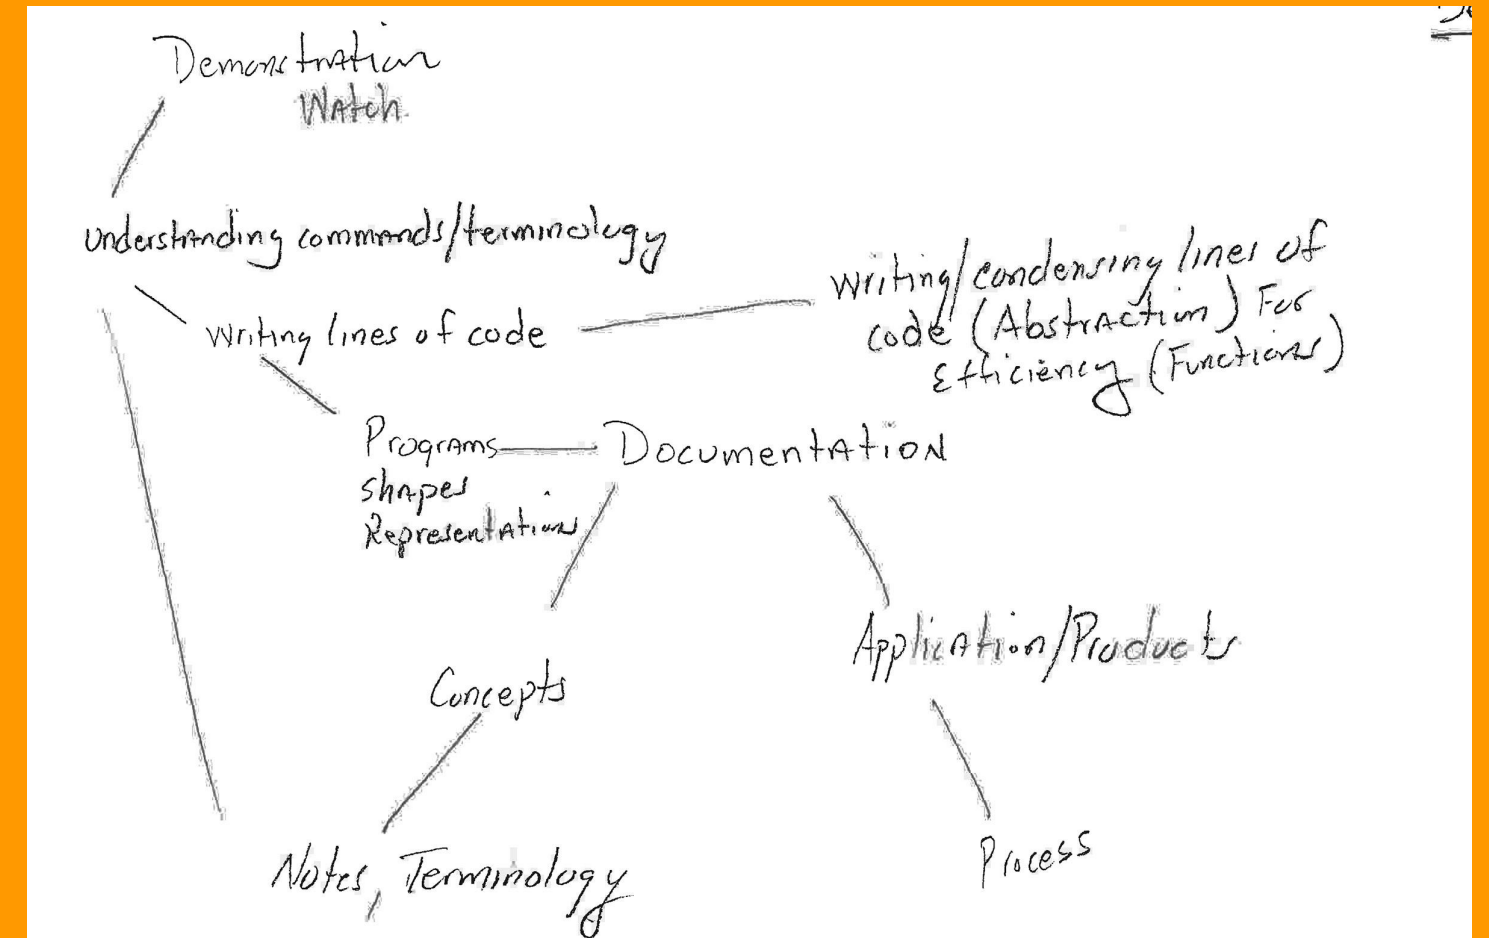 Demonstration
Watch
Understanding commands/terminology
Writing lines of code
Writing/condensing lines of
code (Abstraction) For
Efficiency (Functions)
Programs
Shapes
Representation
Documentation
Concepts
Application/Products
Notes, Terminology
Process